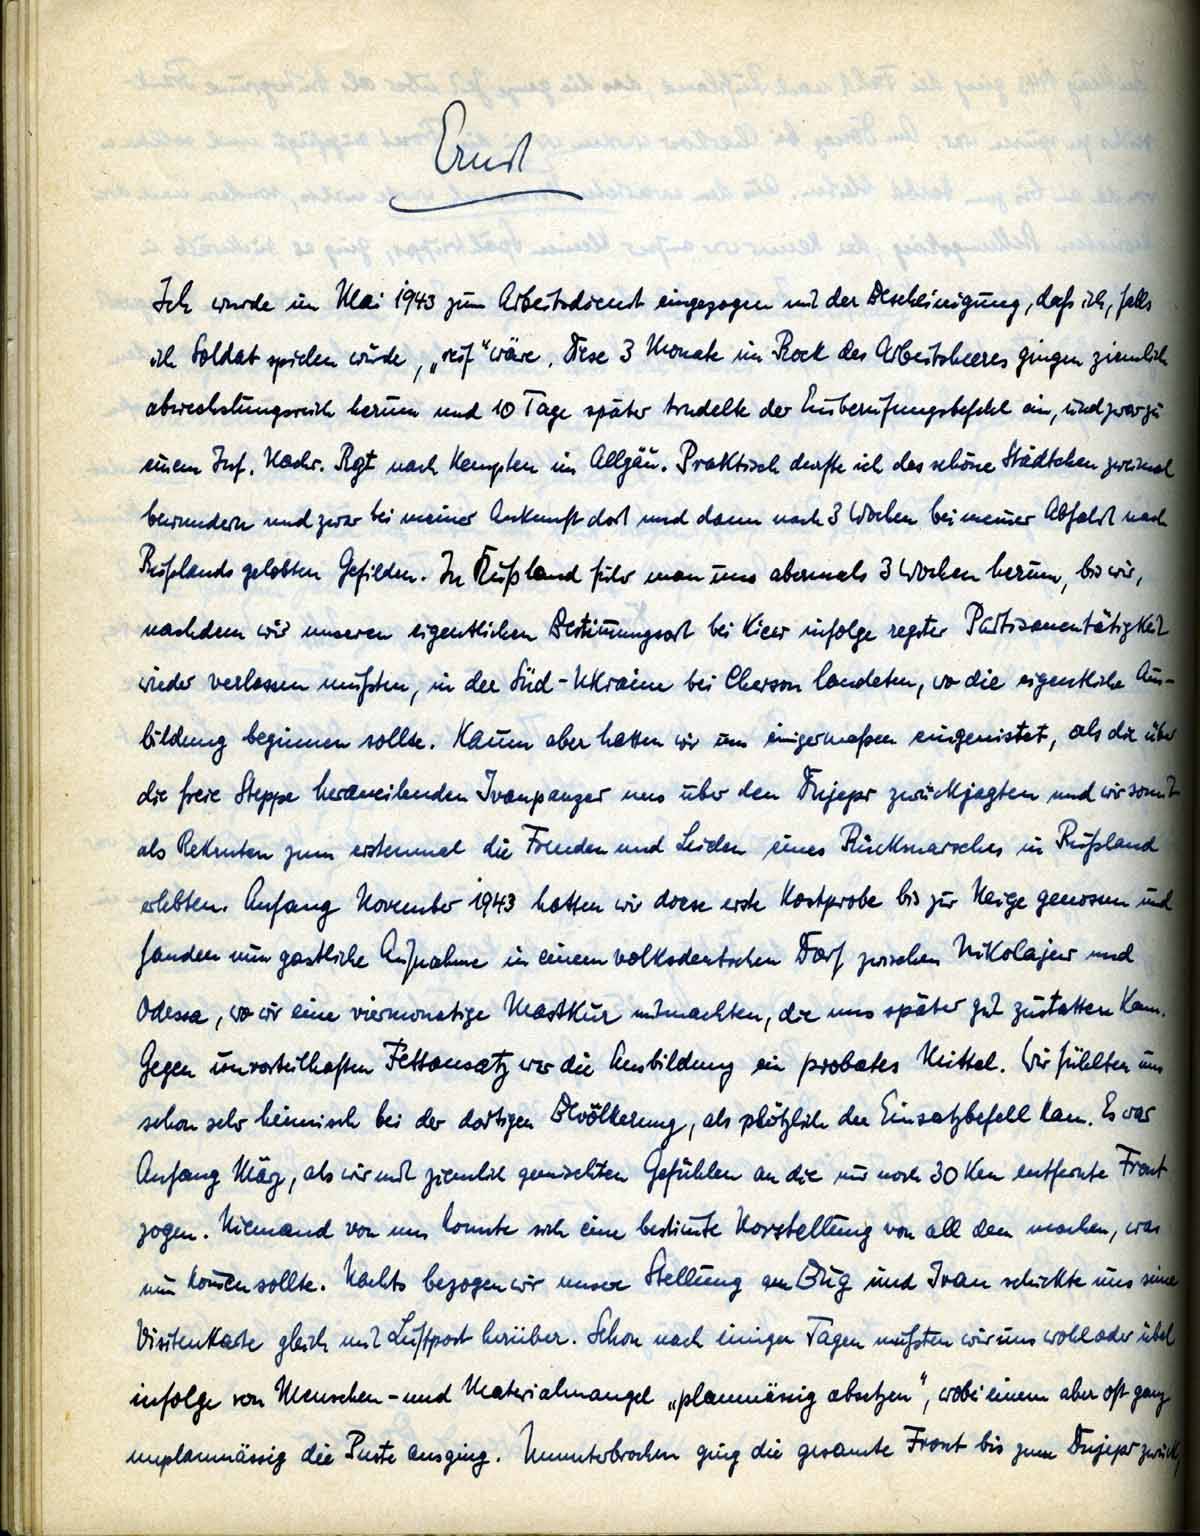 Ernst
Ich wurde im Mai 1943 zum Arbeitsdienst eingezogen mit der Bescheinigung, daß ich, falls
ich Soldat spielen würde, „reif“ wäre. Diese 3 Monate im Rock des Arbeitsheeres gingen ziemlich
abwechslungsreich herum und 10 Tage später trudelte der Einberufungsbefehl ein, und zwar zu
einem Inf. Nachr. Rgt nach Kempten im Allgäu. Praktisch durfte ich das schöne Städtchen zweimal
bewundern und zwar bei meiner Ankunft dort und dann nach 3 Wochen bei meiner Abfahrt nach
Rußlands gelobten Gefilden. In Rußland fuhr man uns abermals 3 Wochen herum, bis wir,
nachdem wir unseren eigentlichen Bestimmungsort bei Kiew infolge regster Partisanentätigkeit
wieder verlassen mußten, in der Süd-Ukraine bei Cherson landeten, wo die eigentliche Aus-
bildung beginnen sollte. Kaum aber hatten wir uns einigermaßen eingenistet, als die über
die freie Steppe heraneilenden Ivanpanzer uns über den Dnjepr zurückjagten und wir somit
als Rekruten zum erstenmal die Freuden und Leiden eines Rückmarsches in Rußland
erlebten. Anfang November 1943 hatten wir diese erste Kostprobe bis zur Neige genossen und
fanden nun gastliche Aufnahme in einem volksdeutschen Dorf zwischen Nikolajew und
Odessa, wo wir eine viermonatige Mastkur mitmachten, die uns später gut zustatten kam.
Gegen unvorteilhaften Fettansatz war die Ausbildung ein probates Mittel. Wir fühlten uns
schon sehr heimisch bei der dortigen Bevölkerung, als plötzlich der Einsatzbefehl kam. Es war
Anfang März, als wir mit ziemlich gemischten Gefühlen an die nur noch 30 Km entfernte Front
zogen. Niemand von uns konnte sich eine bestimte Vorstellung von all dem machen, was
nun komen sollte. Nachts bezogen wir unsere Stellung am Bug und Ivan schickte uns seine
Visitenkarte gleich mit Luftpost herüber. Schon nach einigen Tagen mußten wir uns wohl oder übel
infolge von Menschen- und Materialmangel „planmässig absetzen“, wobei einem aber oft ganz
unplanmässig die Puste ausging. Ununterbrochen ging die gesamte Front bis zum Dnjepr zurück,